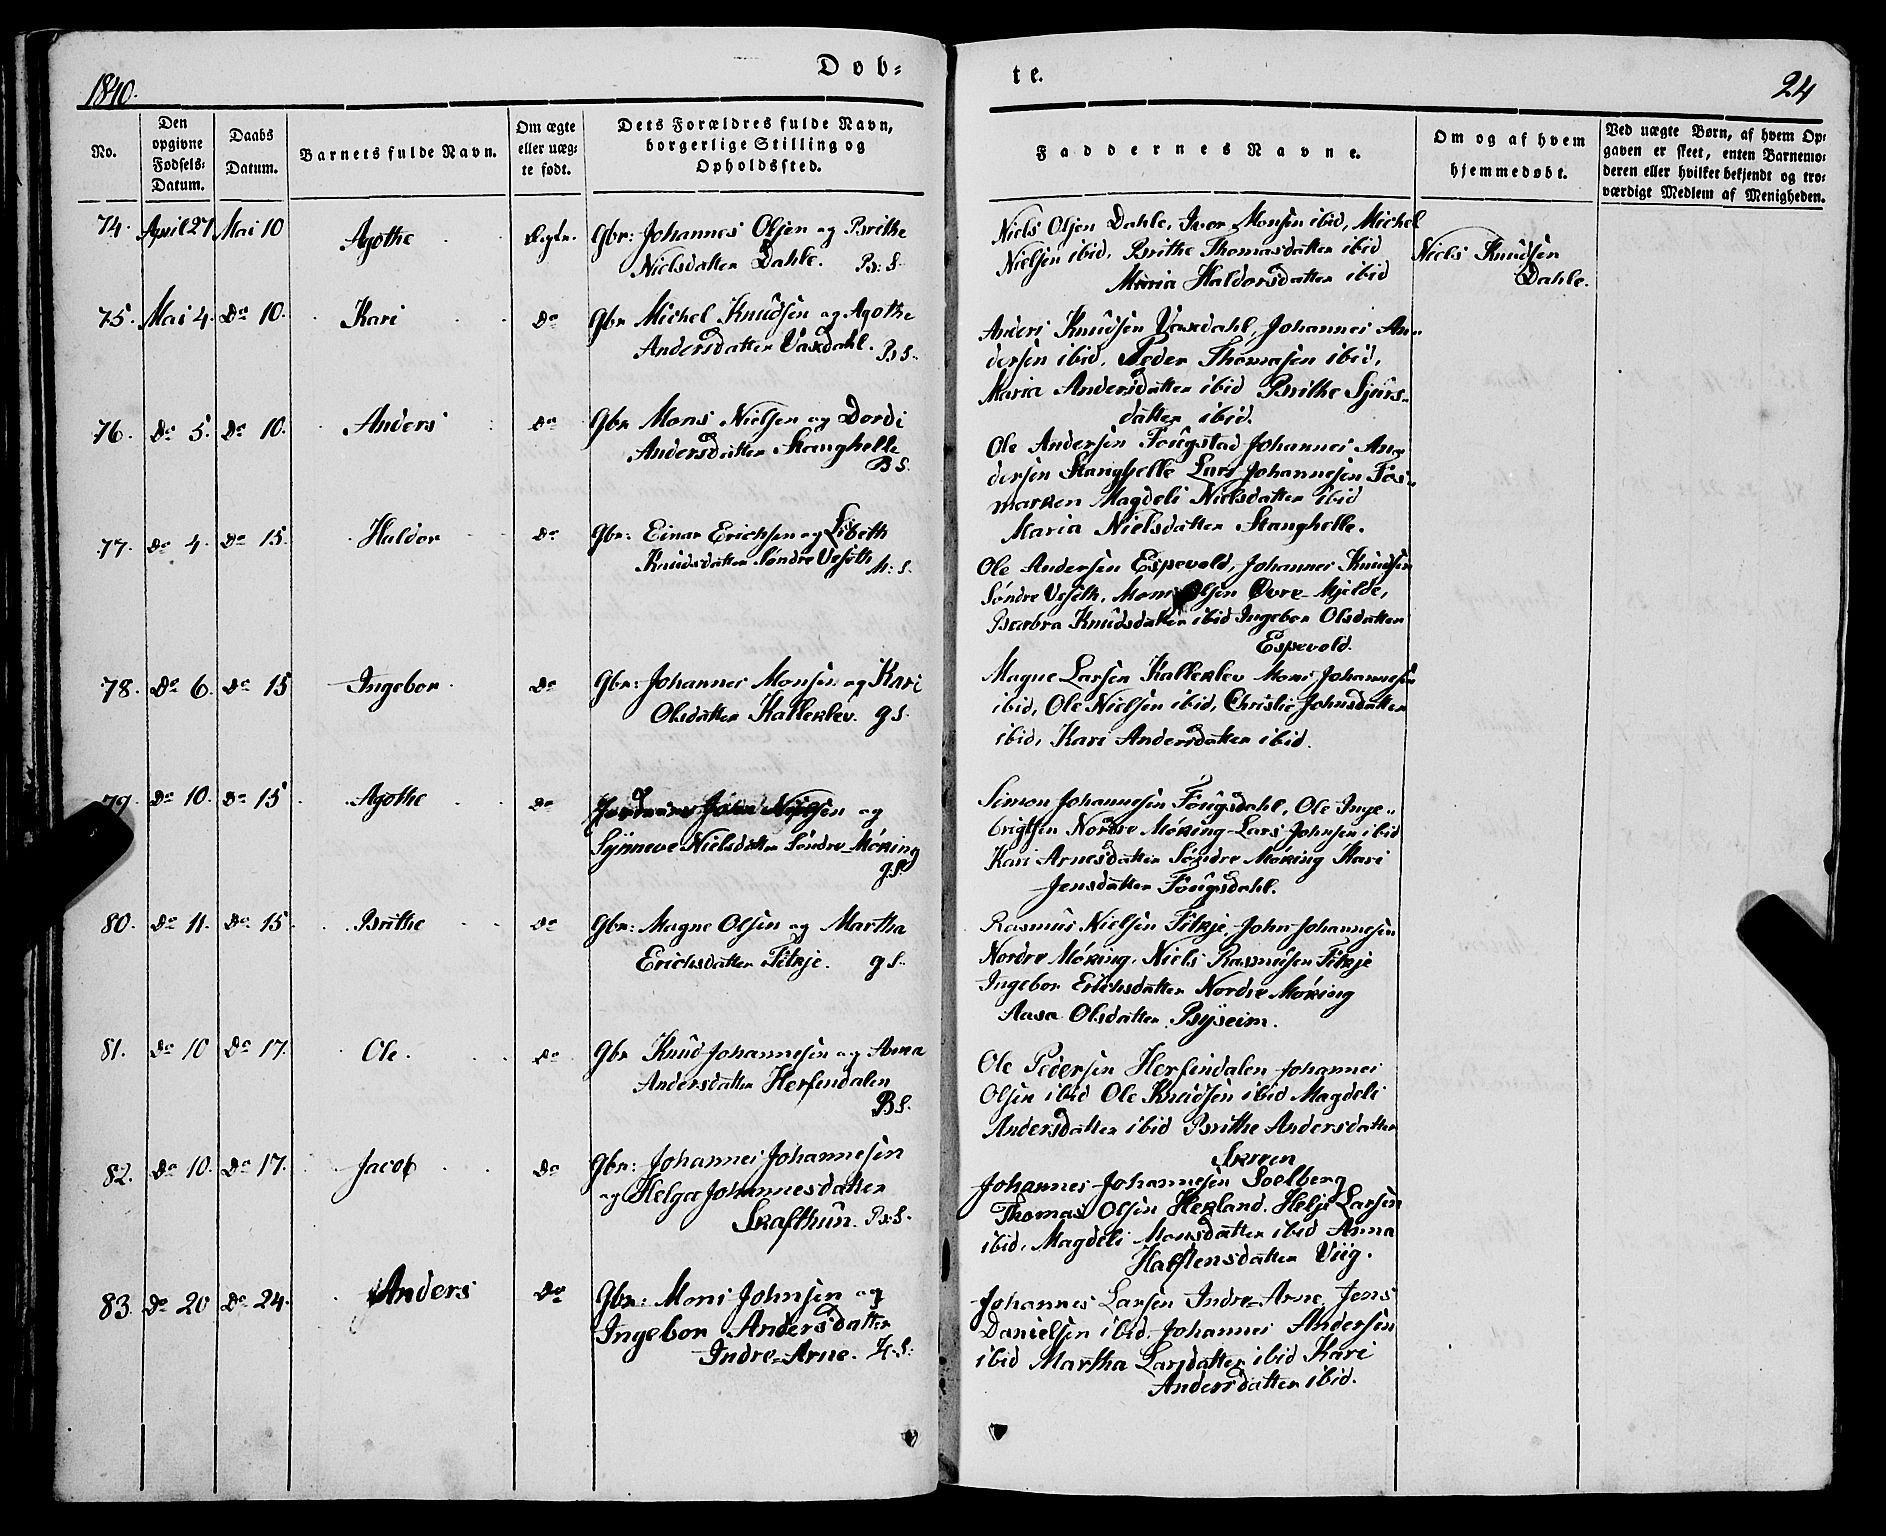 1840.
Døb-
te.
24
No.
Den opgivne Fødsels-Datum.
Daabs Datum.
Barnets fulde Navn.
Om ægte eller uægte født.
Dets Forældres fulde Navn, borgerlige Stilling og Opholdssted.
Faddernes Navne.
Om og af hvem hjemmedøbt.
Ved uægte Børn, af hvem Opgaven er skeet, enten Barnemoderen eller hvilket bekjendt og troværdigt Medlem af Menigheden.
74. April 27 Mai 10 Agothe Gbr: Johannes Olsen og Brithe
Nielsdatter Dahle. B:S.
Niels Olsen Dahle, Iver Monsen ibid, Michel
Nielsen ibid, Brithe Thomasdatter ibid
Maria Haldorsdatter ibid
Niels Knudsen
Dahle.
75. Mai 4. Do 10. Kari Do Gbr Michel Knudsen og Agothe
Andersdatter Vaxdahl. B S.
Anders Knudsen Vaxdahl, Johannes An-
dersen ibid, Peder Thomasen ibid,
Maria Andersdatter ibid Brithe Sjurs-
datter ibid.
76. Do 5. Do 10. Anders Do Gbr Mons Nielsen og Dordi
Andersdatter Stanghelle
B S.
Ole Andersen Fougstad Johannes An-
dersen Stanghelle Lars Johannesen Fos-
marken Magdeli Nielsdatter ibid
Maria Nielsdatter Stanghelle.
77. Do 4. Do 15. Haldor Do Gbr: Einar Erichsen og Lisbeth
Knudsdatter Søndre Veseth M:S.
Ole Andersen Espevold, Johannes Knudsen
Søndre Veseth, Mons Olsen Øvre Mjelde,
Barbra Knudsdatter ibid Ingebor Olsdatter
Espevold.
78. Do 6. Do 15 Ingebor Do Gbr: Johannes Monsen og Kari
Olsdatter Kalleklev. G S.
Magne Larsen Kalleklev Mons Johannesen
ibid, Ole Nielsen ibid, Christie Johnsdatter
ibid, Kari Andersdatter ibid.
79. Do 10. Do 15 Agothe Do og
Synneve Nielsdatter Søndre Møking
G.S.
Simon Johannesen Fougsdahl, Ole Inge-
brigtsen Nordre Møking Lars Johnsen ibid
Kari Arnesdatter Søndre Møking Kari
Jensdatter Fougsdahl.
80. Do 11. Do 15. Brithe Do Gbr: Magne Olsen og Martha
Erichsdatter Titkje. G S.
Rasmus Nielsen Titkje, John Johannesen
Nordre Møking, Niels Rasmusen Titkje
Ingebor Erichsdatter Nordre Møking
Aasa Olsdatter Byseim.
81. Do 10 Do 17. Ole. Do Gbr Knud Johannesen og Anna
Andersdatter Herfindalen
B S.
Ole Pedersen Herfindalen Johannes
Olsen ibid Ole Knudsen ibid Magdeli
Andersdatter ibid Brithe Andersdatter
Skreen
82. Do 10. Do 17. Jacob Do Gbr: Johannes Johannesen
og Helga Johannesdatter
Skafthun. B:S.
Johannes Johannesen Soelberg
Thomas Olsen Hekland. Helje Larsen
ibid, Magdeli Monsdatter ibid Anna
Halstensdatter Viig.
83. Do 20 Do 24. Anders Do Gbr: Mons Johnsen og
Ingebor Andersdatter
Indre-Arne. H.S.
Johannes Larsen Indre-Arne, Jens
Danielsen ibid, Johannes Andersen
ibid Martha Larsdatter ibid Kari
Andersdatter ibid.